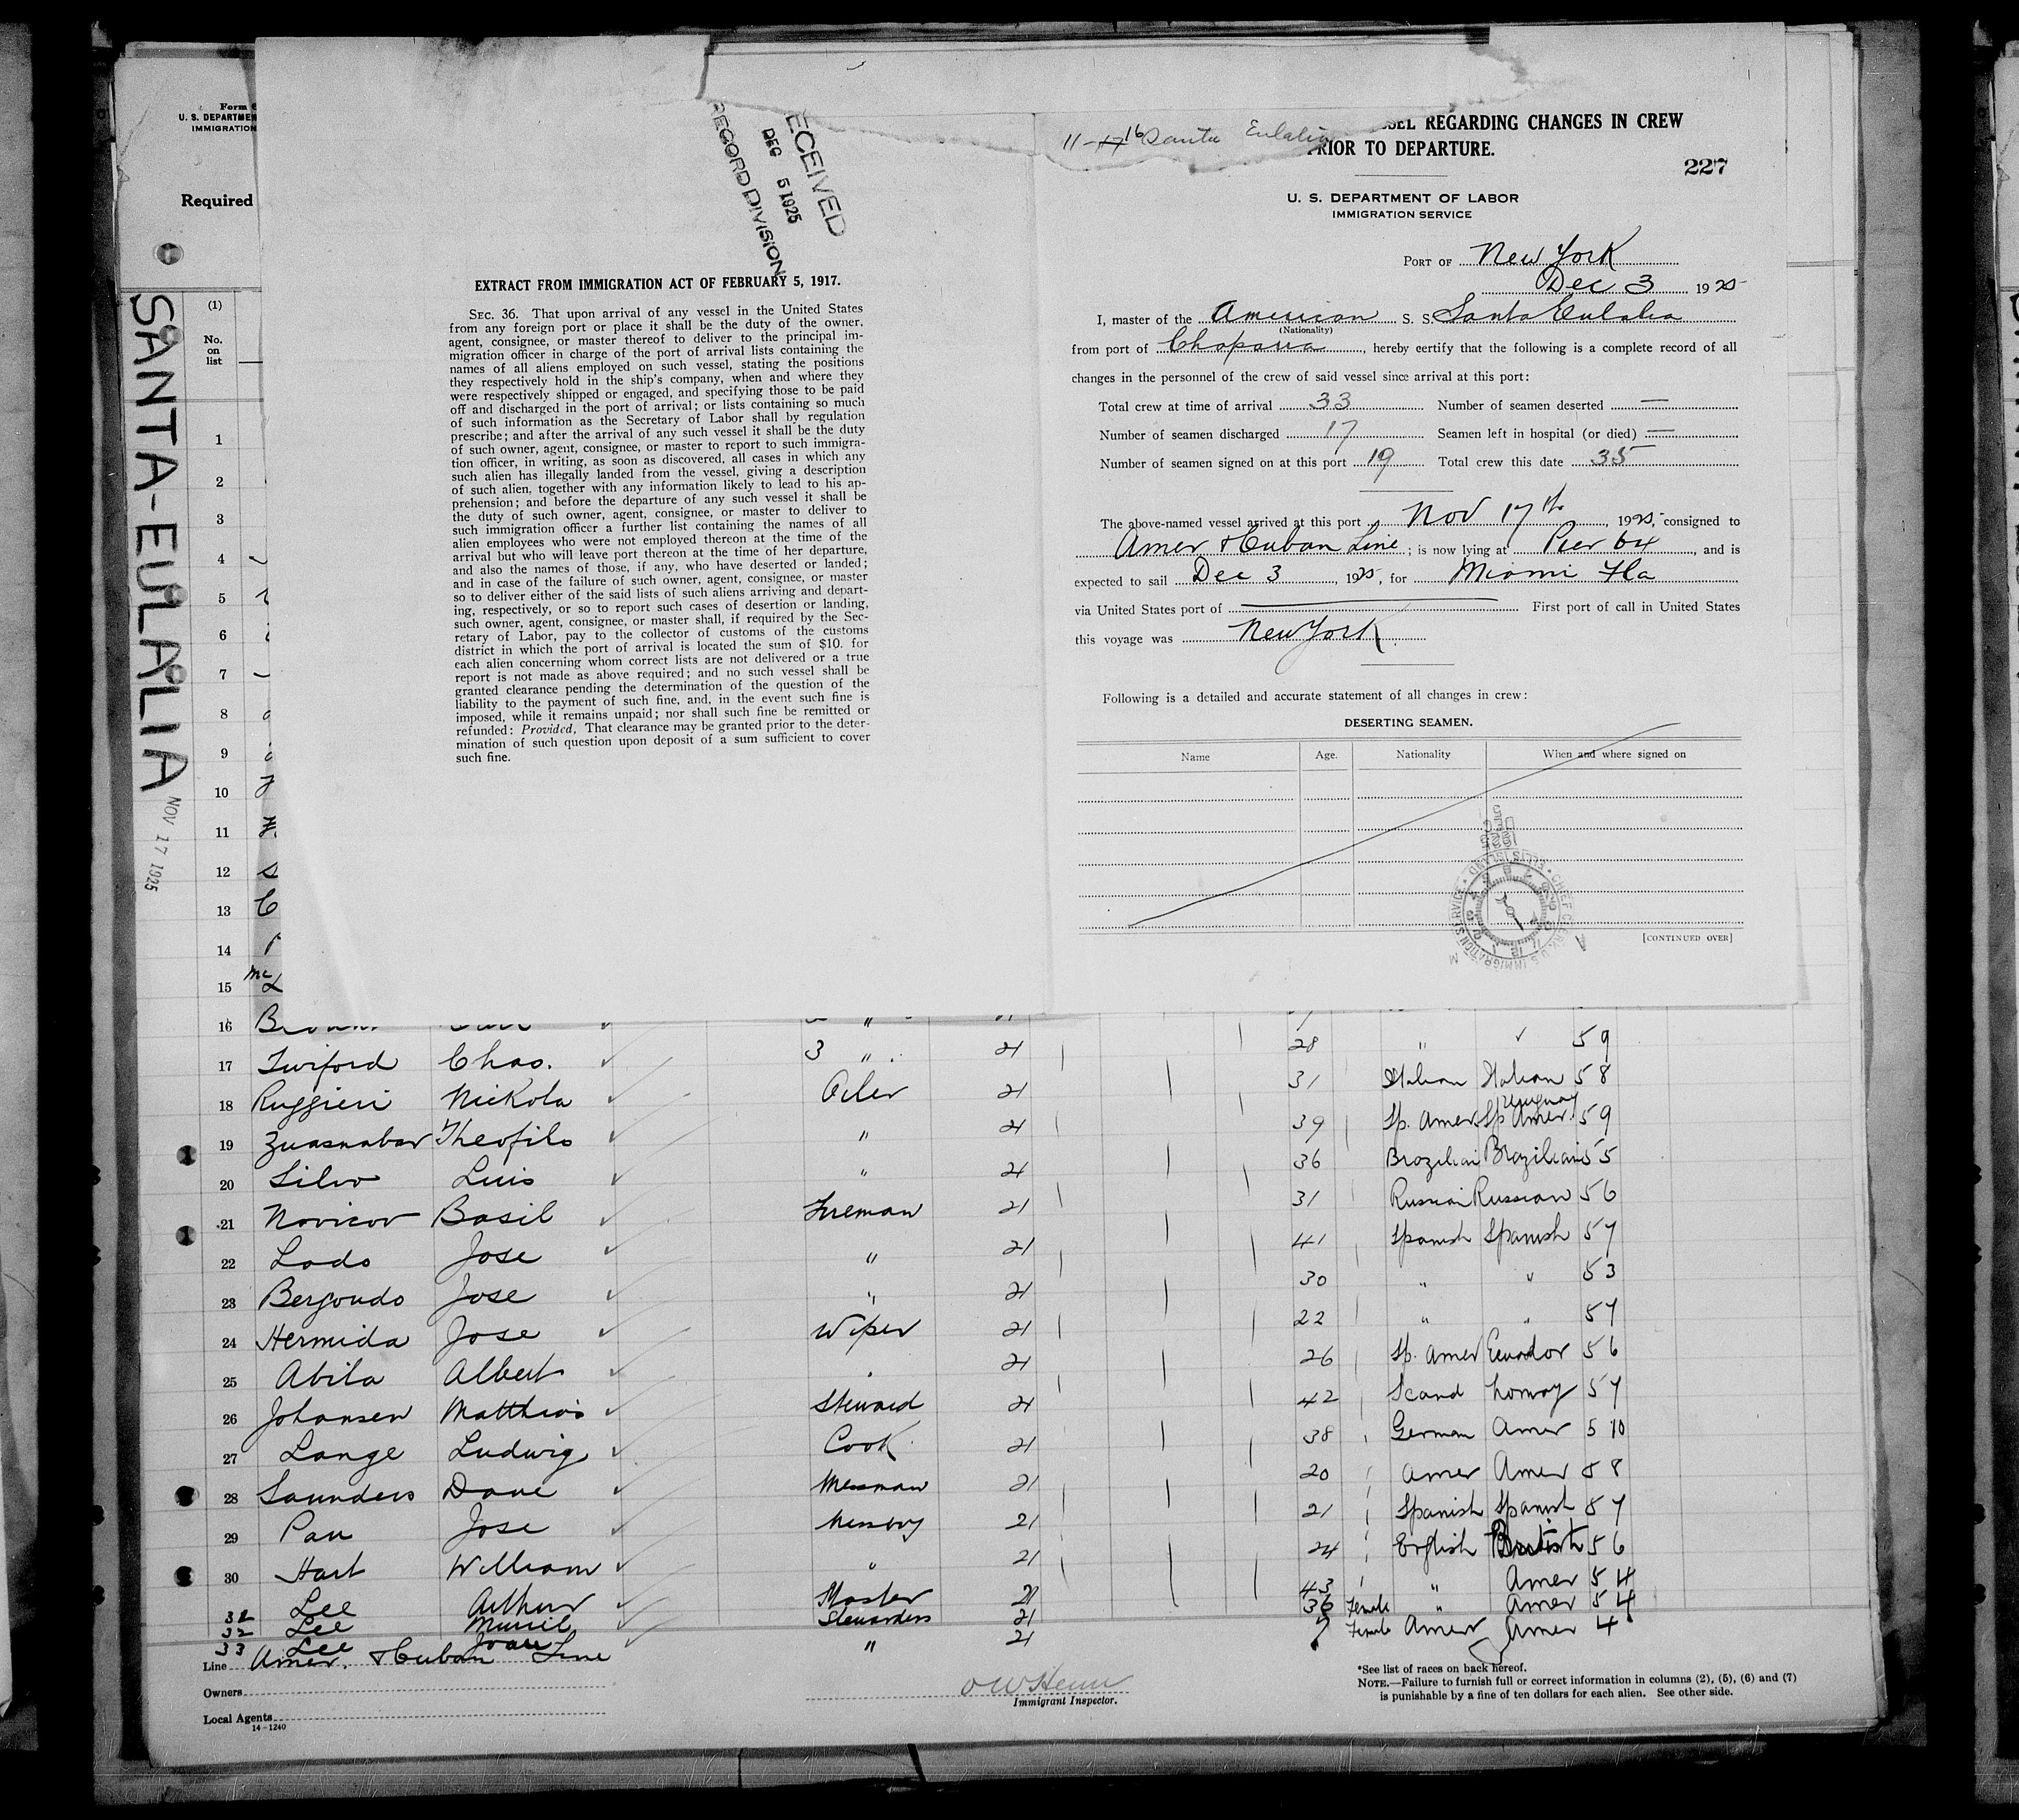 Form
U. S. DEPARTMEN
IMMIGRATION
Required
(1)
No.
on
list
SANTA-EULALIA
NOV 17 1925
1
2
3
4
5
6
7
8
9
10
11
12
13
14
15 Mc
RECEIVED
DEC 5 1925
RECORD DIVISION
EXTRACT FROM IMMIGRATION ACT OF FEBRUARY 5, 1917.
SEC. 36. That upon arrival of any vessel in the United States
from any foreign port or place it shall be the duty of the owner,
agent, consignee, or master thereof to deliver to the principal im-
migration officer in charge of the port of arrival lists containing the
names of all aliens employed on such vessel, stating the positions
they respectively hold in the ship's company, when and where they
were respectively shipped or engaged, and specifying those to be paid
off and discharged in the port of arrival; or lists containing so much
of such information as the Secretary of Labor shall by regulation
prescribe; and after the arrival of any such vessel it shall be the duty
of such owner, agent, consignee, or master to report to such immigra-
tion officer, in writing, as soon as discovered, all cases in which any
such alien has illegally landed from the vessel, giving a description
of such alien, together with any information likely to lead to his ap-
prehension; and before the departure of any such vessel it shall be
the duty of such owner, agent, consignee, or master to deliver to
such immigration officer a further list containing the names of all
alien employees who were not employed thereon at the time of the
arrival but who will leave port thereon at the time of her departure,
and also the names of those, if any, who have deserted or landed;
and in case of the failure of such owner, agent, consignee, or master
so to deliver either of the said lists of such aliens arriving and depart-
ing, respectively, or so to report such cases of desertion or landing,
such owner, agent, consignee, or master shall, if required by the Sec-
retary of Labor, pay to the collector of customs of the customs
district in which the port of arrival is located the sum of $10. for
each alien concerning whom correct lists are not delivered or a true
report is not made as above required; and no such vessel shall be
granted clearance pending the determination of the question of the
liability to the payment of such fine, and, in the event such fine is
imposed, while it remains unpaid; nor shall such fine be remitted or
refunded: Provided, That clearance may be granted prior to the deter-
mination of such question upon deposit of a sum sufficient to cover
such fine.
11-17 16 Santa Eulalia
SEL REGARDING CHANGES IN CREW
PRIOR TO DEPARTURE.
227
U. S. DEPARTMENT OF LABOR
IMMIGRATION SERVICE
PORT OF New York
Dec 3 1925
I, master of the American S. S. Santa Eulalia
(Nationality)
from port of Chaparra, hereby certify that the following is a complete record of all
changes in the personnel of the crew of said vessel since arrival at this port:
Total crew at time of arrival 33 Number of seamen deserted —
Number of seamen discharged 17 Seamen left in hospital (or died) —
Number of seamen signed on at this port 19 Total crew this date 35
The above-named vessel arrived at this port Nov 17th, 1925, consigned to
Amer & Cuban Line; is now lying at Pier 64, and is
expected to sail Dec 3, 1925, for Miami Fla
via United States port of First port of call in United States
this voyage was New York.
Following is a detailed and accurate statement of all changes in crew:
DESERTING SEAMEN.
Name Age. Nationality When and where signed on
CHIEF CLERK, U.S. IMMIGRATION SERVICE • ELLIS ISLAND •
[CONTINUED OVER]
16 Brown
17 Twiford Chas. 3 " 21 28 " " 5 9
18 Ruggieri Nickola Oiler 21 31 Italian Italian 5 8
19 Zuasnabar Theofilo " 21 39 Sp. Amer Sp Amer. Uruguay 5 9
20 Silvo Luis " 21 36 Brazilian Brazilian 5 5
21 Novicov Basil Fireman 21 31 Russian Russian 5 6
22 Lado Jose " 21 41 Spanish Spanish 5 7
23 Bergondo Jose " 21 30 " " 5 3
24 Hermida Jose Wiper 21 22 " " 5 7
25 Abila Albert " 21 26 Sp. Amer Ecuador 5 6
26 Johansen Matthias Steward 21 42 Scand Norway 5 7
27 Lange Ludwig Cook 21 38 German Amer 5 10
28 Saunders Dave Messman 21 20 Amer Amer 5 8
29 Pan Jose Messboy 21 21 Spanish Spanish 5 7
30 Hart William " 21 24 English British 5 6
32 Lee Arthur Master 21 43 " Amer 5 4
32 Lee Muriel Stewardess 21 36 Female " Amer 5 4
33 Lee Joan " 21 7 Female Amer Amer 4
Line Amer. & Cuban Line
Owners
Local Agents
14-1240
Immigrant Inspector.
*See list of races on back hereof.
NOTE.—Failure to furnish full or correct information in columns (2), (5), (6) and (7)
is punishable by a fine of ten dollars for each alien. See other side.